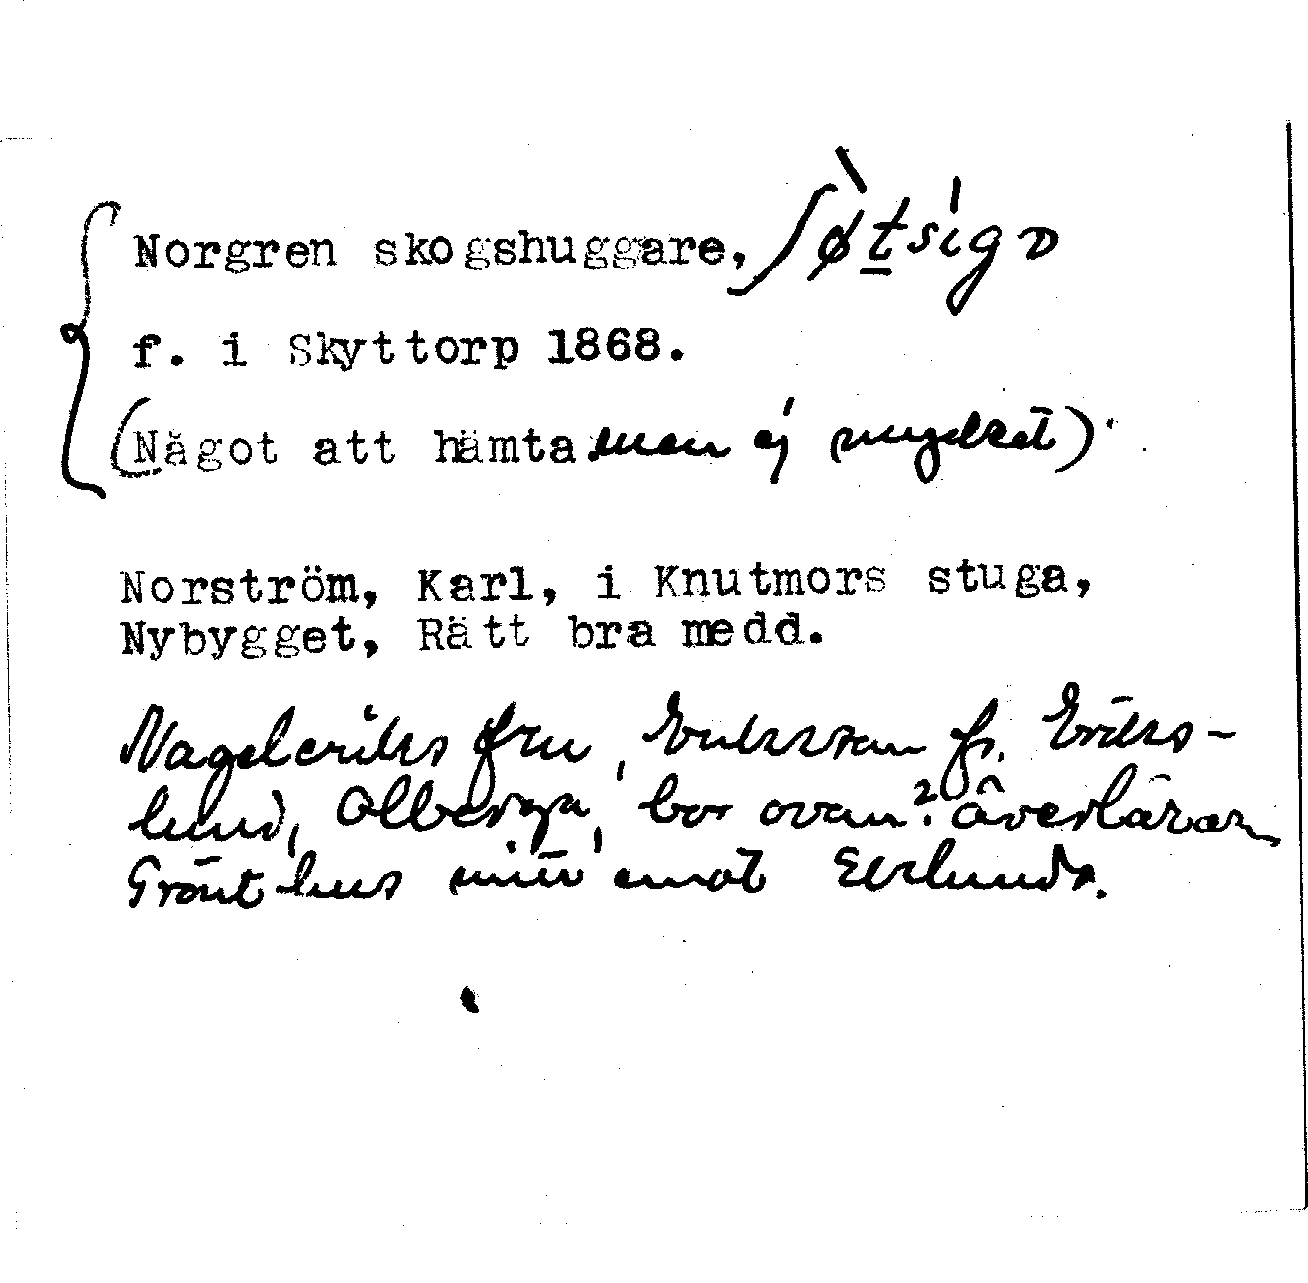 Norgren skogshuggare, ʃø̀tsígɒ
f. i Skyttorp 1868.
(Något att hämta men ej mycket)
Norström, Karl, i Knutmors stuga,
Nybygget, Rätt bra medd.
Nageleriks fru, Eriksson fr. Eriks-
lund, Ålberga, bor ovan? överläraren
hus mitt emot Eklunds.